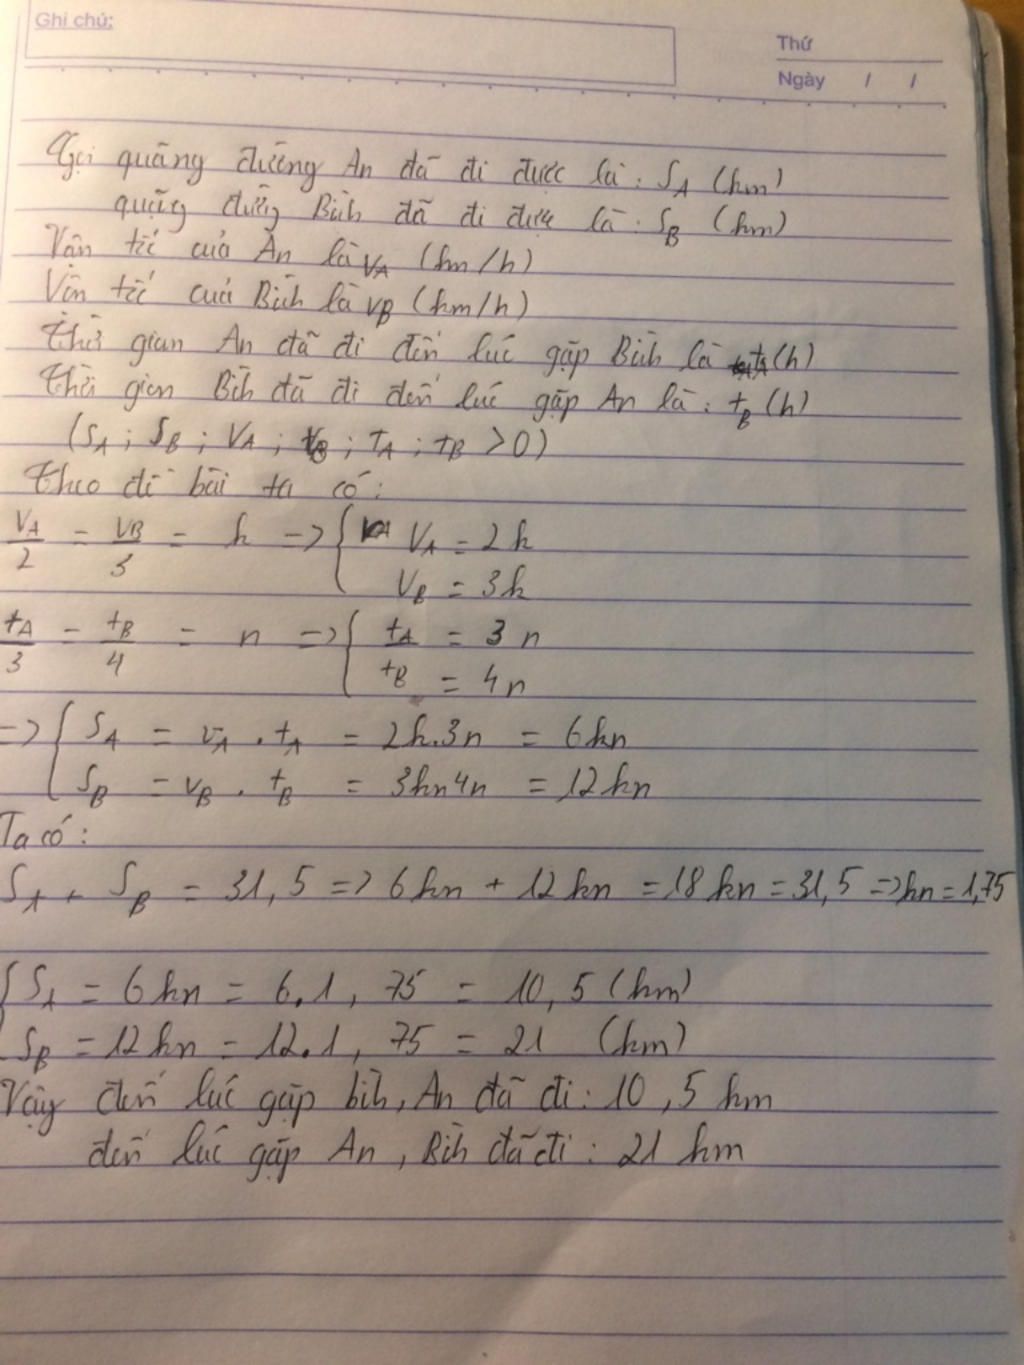 Ghi chú:
Thứ
Ngày / /
Gọi quãng đường An đã đi được là: SA (km)
quãng đường Bình đã đi được là: SB (km)
Vận tốc của An là VA (km/h)
Vận tốc của Bình là VB (km/h)
Thời gian An đã đi đến lúc gặp Bình là tA (h)
Thời gian Bình đã đi đến lúc gặp An là: tB (h)
(SA ; SB ; VA ; VB ; TA ; tB > 0)
Theo đề bài ta có:
VA/2 = VB/3 = k => { VA = 2k
VB = 3k
tA/3 = tB/4 = n => { tA = 3n
tB = 4n
=> { SA = vA . tA = 2k.3n = 6kn
SB = vB . tB = 3kn4n = 12kn
Ta có:
SA + SB = 31,5 => 6kn + 12kn = 18kn = 31,5 => kn = 1,75
{ SA = 6kn = 6.1,75 = 10,5 (km)
SB = 12kn = 12.1,75 = 21 (km)
Vậy đến lúc gặp bình, An đã đi: 10,5 km
đến lúc gặp An, Bình đã đi: 21 km